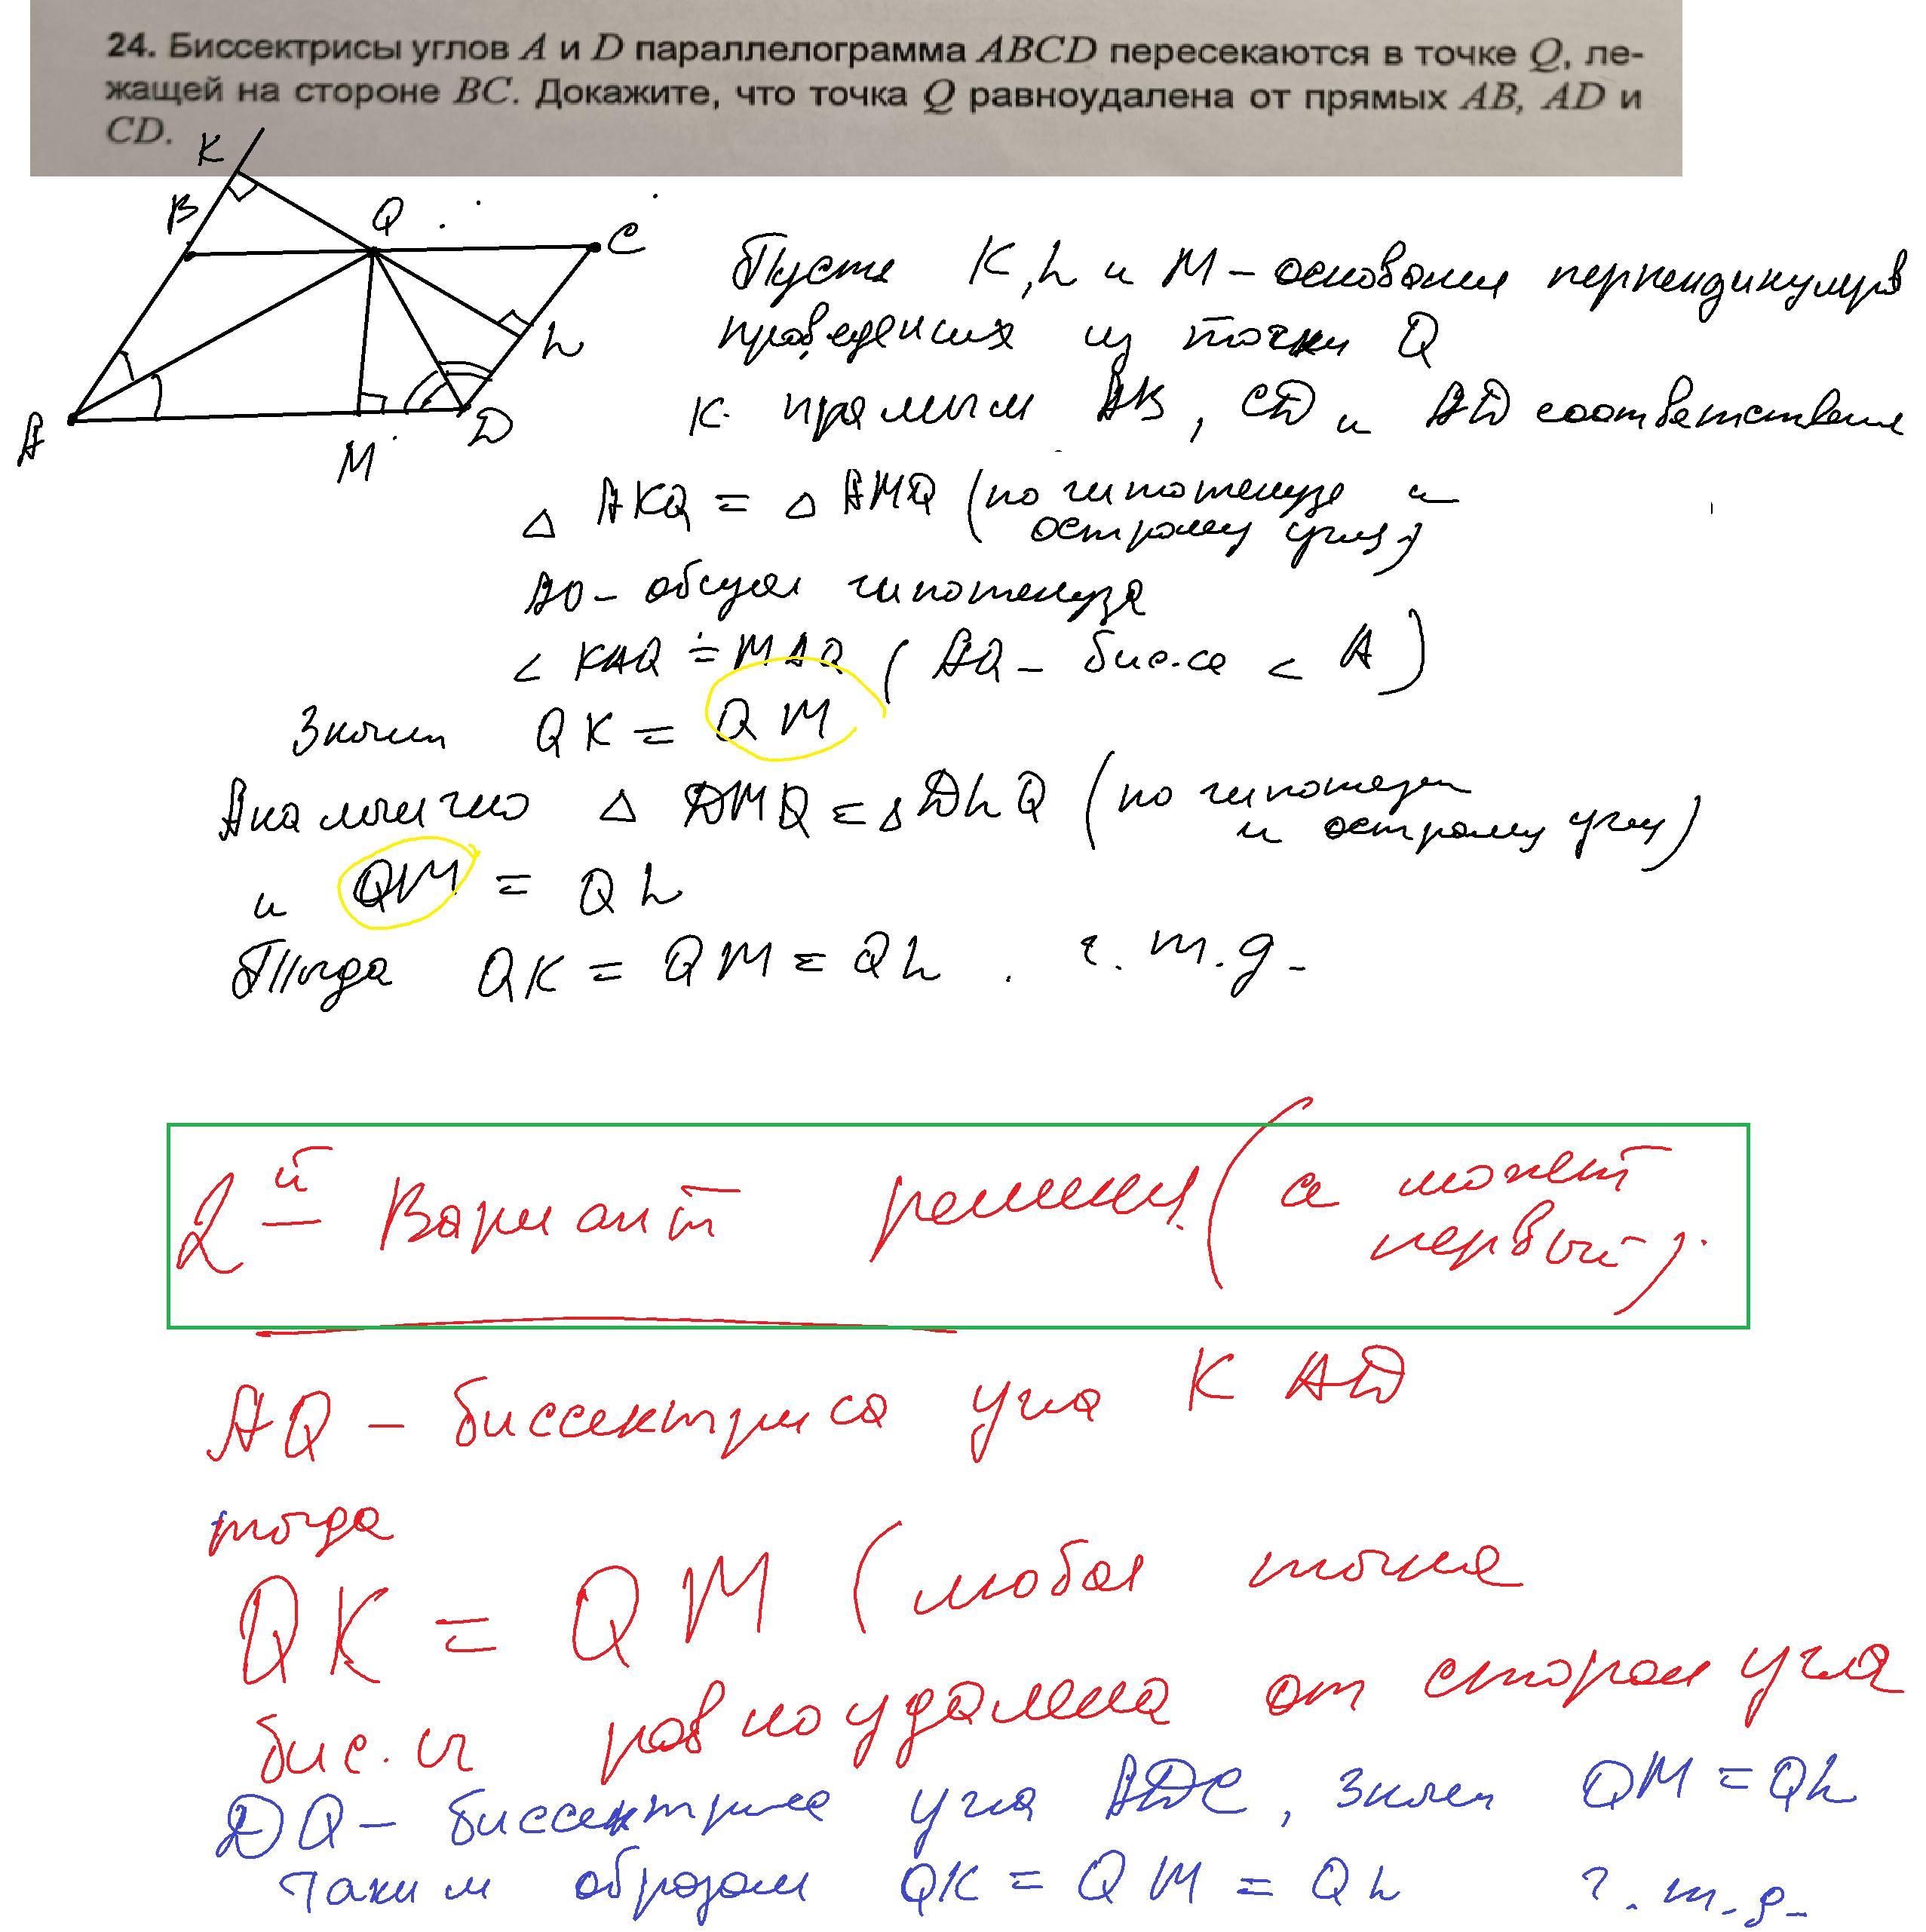 24. Биссектрисы углов A и D параллелограмма ABCD пересекаются в точке Q, ле-
жащей на стороне BC. Докажите, что точка Q равноудалена от прямых AB, AD и
CD.
K
B
Q
C
L
A
M
D
Пусть K, L и M - основания перпендикуляров
проведенных из точки Q
к прямым AB, CD и AD соответственно
△ AKQ = △ AMQ (по гипотенузе и
острому углу)
AQ - общая гипотенуза
< KAQ = MAQ ( AQ - бис-са < A )
Значит QK = QM
Аналогично △ DMQ = △ DLQ (по гипотенузе
и острому углу)
и QM = QL
Тогда QK = QM = QL . ч. т. д.
2й Вариант решения (а может
первый).
AQ - биссектриса угла KAD
тогда
QK = QM (любая точка
бис.сы равноудалена от сторон угла
DQ - биссектриса угла ADC, значит QM = QL
Таким образом QK = QM = QL ч. т. д.